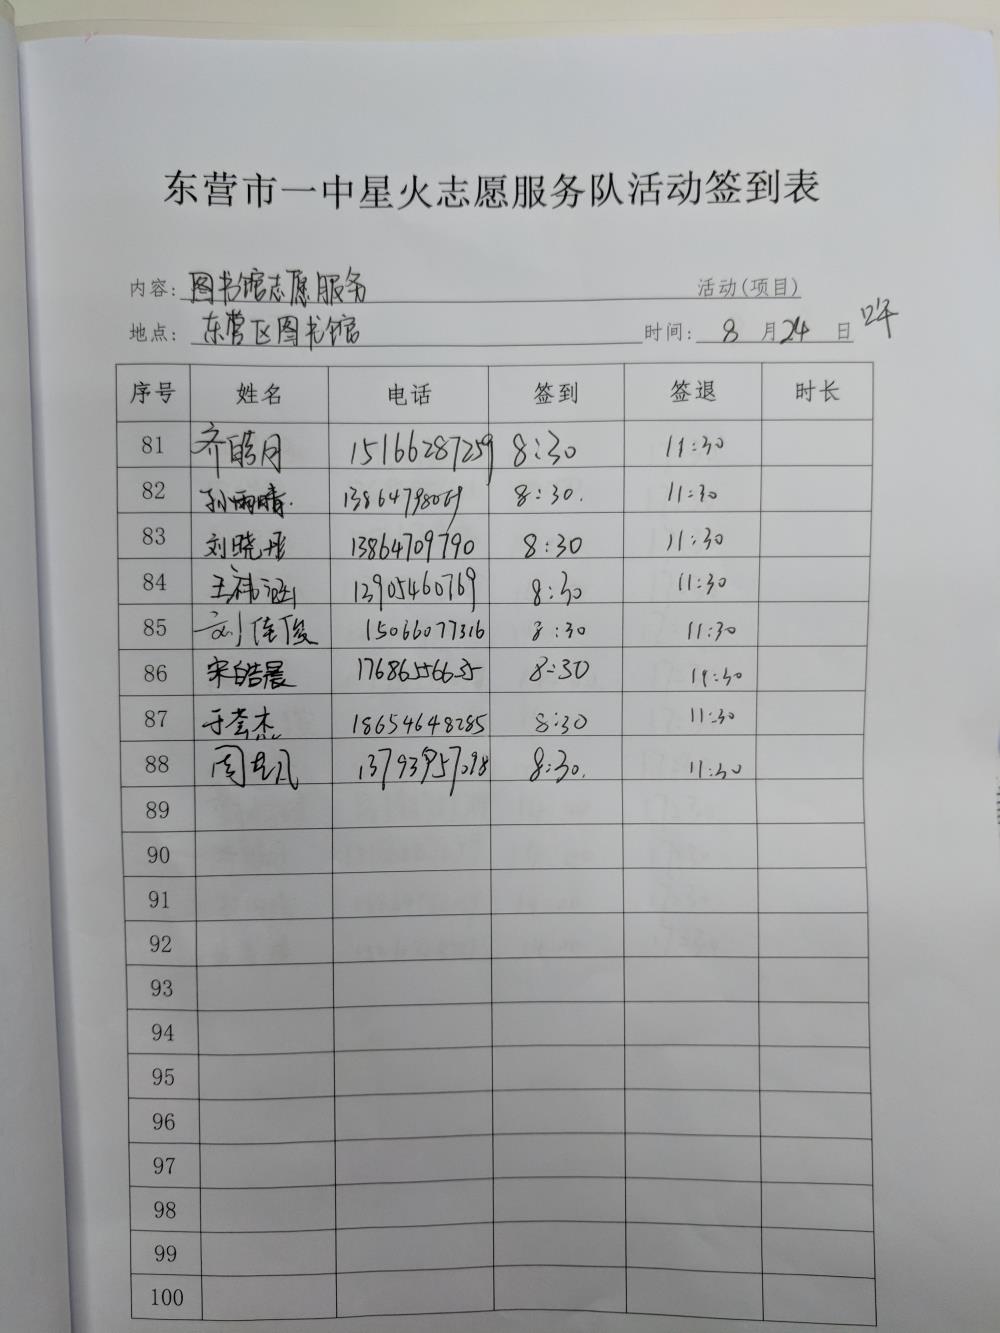 东营市一中星火志愿服务队活动签到表
内容: 图书馆志愿服务 活动(项目)
地点: 东营区图书馆 时间: 8 月 24 日
序号 姓名 电话 签到 签退 时长
81 齐皓月 15166287259 8:30 11:30
82 孙雨晴. 8:30. 11:30
83 刘晓彤 13864709790 8:30 11:30
84 王祎涵 13905460769 8:30 11:30
85 刘佳俊 15066077316 8:30 11:30
86 宋皓晨 17686556635 8:30 11:30
87 18654648285 8:30 11:30
88 8:30. 11:30
89
90
91
92
93
94
95
96
97
98
99
100